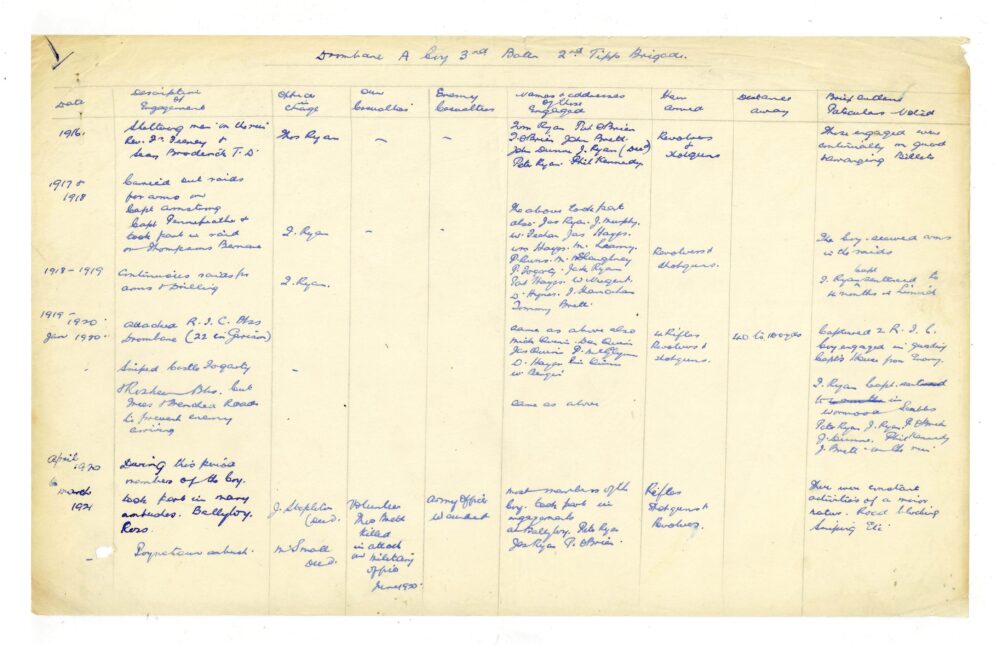 Drombane A Coy 3rd Batn 2nd Tipp Brigade.
Date
Description of Engagement
Officer i/c Charge
Our Casualties
Enemy Casualties
Names & addresses of those Engaged
How armed
Distance away
Brief outline Particulars
1916.
Sheltering men on the run
Rev. Fr. Feeney &
Sean Broderick T.D.
Thos Ryan
–
–
Tom Ryan Pat O'Brien
T. O'Brien John Brett
John Dunne J. Ryan (Decd)
Pete Ryan. Phil Kennedy
Revolvers
&
Shotguns
Those engaged were
continually on guard
arranging Billets
1917 &
1918
Carried out raids
for arms on
Capt Armstrong
Capt Pennefeather &
took part in raid
on Thompsons
T. Ryan
–
–
The above took part
also. Jas Ryan. J. Murphy.
Jas Hayes.
Wm Hayes. M. Leamy.
P. Burns. M.
P. Fogarty. Jack Ryan
Pat Hayes. W. Nugent.
D. Hynes. J. Hanrahan
Tommy Brett.
Revolvers &
Shotguns.
The Coy. secured arms
in the raids
1918 – 1919
Continuous raids for
arms & Drilling
T. Ryan.
Capt
T. Ryan sentenced to
4 months in Limerick
1919 –
1920
Jan 1920.
Attacked R.I.C. Bks
Drombane (22 in Garrison)
same as above also
Mick Quinn. Dan Quinn
Jas Quinn P.
D. Hayes
W.
4 Rifles
Revolvers &
Shotguns.
40 to 100 yds
Captured 2 R.I.C.
Coy engaged in guarding
Capt's House from Enemy.
Sniped Castle Fogarty
–
& Roskeen Bks. Cut
Trees & Trenched Roads
to prevent enemy
arriving
same as above
T. Ryan Capt. sentenced
to months in
Wormwood Scrubbs
Pete Ryan J. Ryan. P. O'Brien
J. Dunne. Phil Kennedy
J. Brett – on the run
April
1920
to
March
1921
During this period
members of the Coy.
took part in many
ambushes. Ballyboy.
Ross.
J. Stapleton
(Decd.
Volunteer
Thos Brett
killed
in attack
on military
June 1920.
Army Officer
wounded
most members of the
Coy. took part in
engagements
at Ballyboy. Pete Ryan
Jas Ryan P. O'Brien.
Rifles
Shotguns &
Revolvers.
There were constant
activities of a minor
nature. Road blocking
Sniping Etc.
–
Poynstown ambush.
M. Small
Decd.